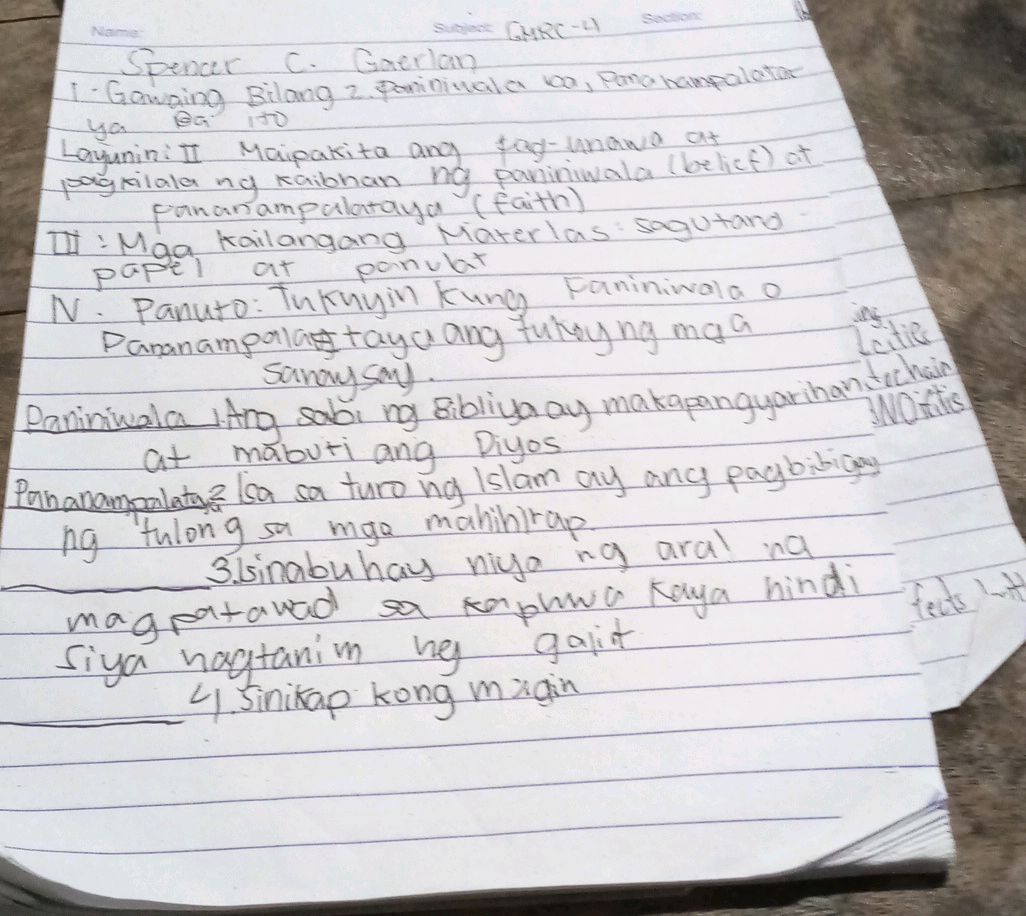 Name: Subject: GMRC-4 Section:
Spencer C. Gaerlan
I. Gawaing Bilang 2. Paniniwala ba, Pananampalata
ya Ba ito
Layunin: II Maipakita ang pag-unawa at
pagkilala ng kaibhan ng paniniwala (belief) at
pananampalataya (faith)
III: Mga kailangang Materlas: sagutang
papel at panulat
IV. Panuto: Tukuyin kung Paniniwala o
Pananampalataya ang tukoy ng mga
sanaysay.
Paniniwala 1. Ang sabi ng Bibliya ay makapangyarihan
at mabuti ang Diyos
Pananampalataya 2 Isa sa turo ng Islam ay ang pagbibigay
ng tulong sa mga mahihirap.
3. isinabuhay niya ng aral na
magpatawad sa kaphwa kaya hindi
siya nagtanim ng galit
4. Sinikap kong magin
ing